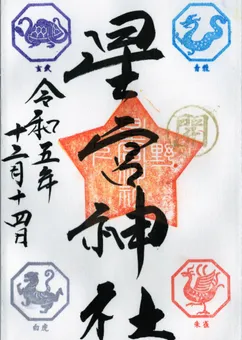 玄武
青龍
星宮神社
令和五年
十二月十四日
白虎
朱雀